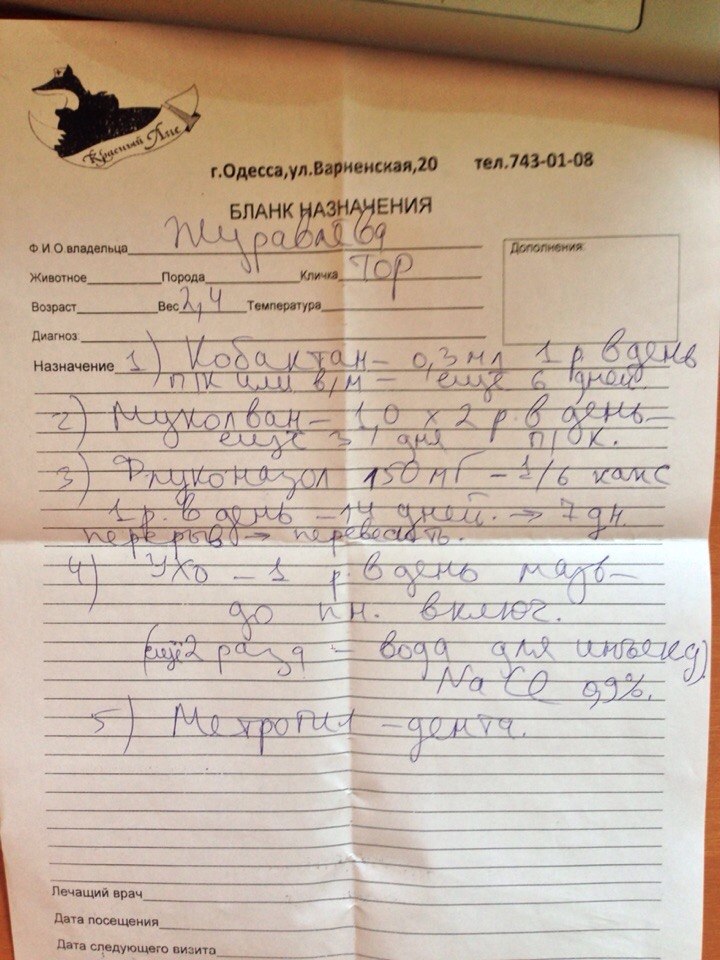 Красный Лис
г.Одесса,ул.Варненская,20 тел.743-01-08
БЛАНК НАЗНАЧЕНИЯ
Ф И О владельца Журавлёва
Дополнения:
Животное Порода Кличка ТОР
Возраст Вес 2,4 Температура
Диагноз
Назначение 1) Кобактан – 0,3 мл 1 р. в день
п/к или в/м – ещё 6 дней.
2) Муколван – 1,0 х 2 р. в день –
ещё 3 дня п/к.
3) Флуконазол 150 мг – 1/6 капс
1 р. в день – 14 дней. → 7 дн.
перерыв → перевесить.
4) Ухо – 1 р. в день мазь –
до пн. включ.
(ещё 2 раза – вода для инъекц)
NaCl 0,9%.
5) Метрогил – дента.
Лечащий врач
Дата посещения
Дата следующего визита